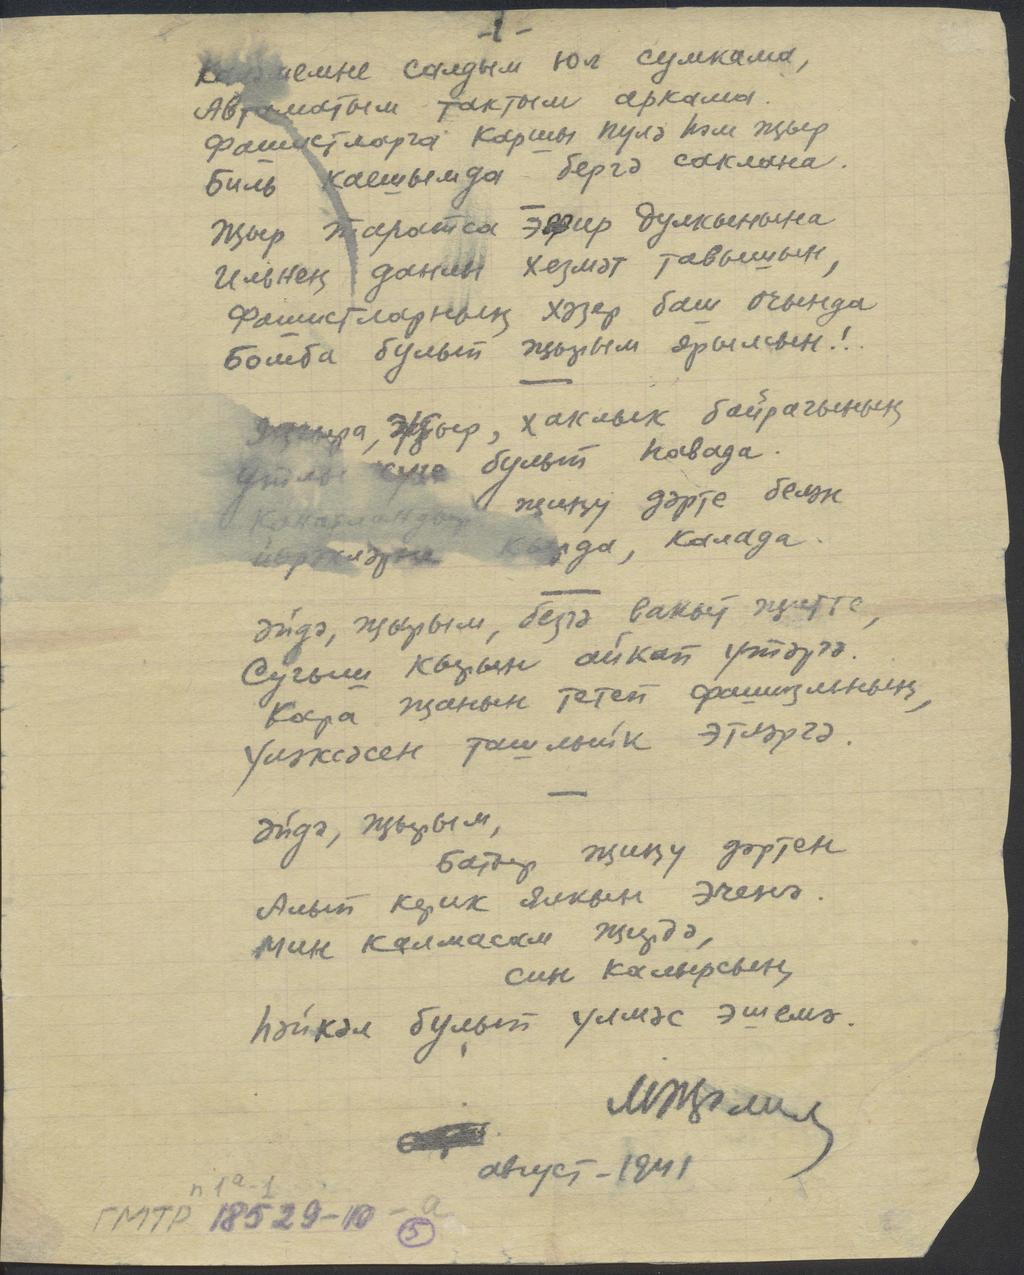 -1-
салдым юл сумкама,
Автоматым тактым аркама.
Фашистларга каршы пуля һәм җыр
Биль каешымда бергә саклана.
Җыр таратса эфир дулкынына
Илнең данлы хезмәт тавышын,
Фашистларның хәзер баш очында
Бомба булып җырым ярылсын!
Яңгыра, җыр, хаклык байрагының
Утлы сүзе булып һавада.
Канатландыр җиңү дәрте белән
Йөрәкләрне кырда, калада.
Әйдә, җырым, безгә вакыт җитте,
Сугыш кырын айкап үтәргә.
Кара җанын тетеп фашизмның,
Үләксәсен ташлыйк этләргә.
Әйдә, җырым,
Батыр җиңү дәртен
Алып керик ялкын эченә.
Мин калмасам җирдә,
син калырсың
Һәйкәл булып үлмәс эшемә.
МҖәлил
август – 1941
п 1а-1
ГМТР 18529-10-а
5